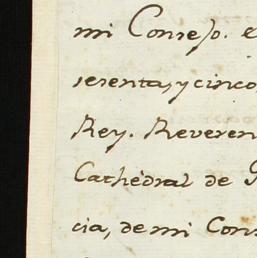 mi Consejo. e
sesenta, y cinco,
Rey. Reveren
Cathedral de
cia, de mi Con